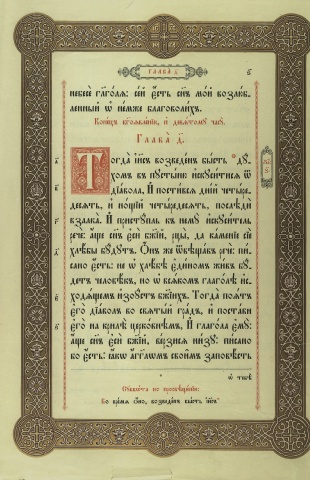 ГЛАВА̀ Д҃. Є҃
небесѐ глаго́лѧ: се́й є҆́сть сн҃ъ мо́й возлю́б-
ленный ѡ҆ не́мже благоволи́хъ.
Коне́цъ бг҃оѧвле́нїю, и҆ девѧ́тому часꙋ̀.
ГЛАВА̀ Д҃.
Тогда̀ і҆и҃съ возведе́нъ бы́сть дꙋ́-
хомъ въ пꙋсты́ню и҆скꙋси́тисѧ ѿ
дїа́вола, И҆ пости́всѧ дні́й четы́ре-
десѧть, и҆ но́щїй четы́редесѧть, послѣдѝ
взалка̀. И҆ пристꙋ́пль къ немꙋ̀ и҆скꙋси́тель
речѐ: а҆́ще сн҃ъ є҆сѝ бж҃їй, рцы̀, да ка́менїе сїѐ
хлѣ́бы бꙋ́дꙋтъ. Ѻ҆́нъ же ѿвѣща́въ речѐ: пи́-
сано є҆́сть: не ѡ҆ хлѣ́бѣ є҆ди́номъ жи́въ бꙋ́-
детъ человѣ́къ, но ѡ҆ всѧ́комъ глаго́лѣ и҆с-
ходѧ́щемъ и҆зо ᲂу҆́стъ бж҃їихъ. Тогда̀ поѧ́тъ
є҆го̀ дїа́волъ во ст҃ы́й гра́дъ, и҆ поста́ви
є҆го̀ на крилѣ̀ церко́внѣмъ, И҆ глаго́ла є҆мꙋ̀:
а҆́ще сн҃ъ є҆сѝ бж҃їй, ве́рзисѧ ни́зꙋ: пи́сано
бо є҆́сть: ꙗ҆́кѡ а҆́гг҃лѡмъ свои̑мъ заповѣ́сть
ѡ҆ тебѣ̀
Сꙋббѡ́та по просвѣще́нїи:
Во вре́мѧ ѻ҆́но, возведе́нъ бы́сть і҆и҃съ